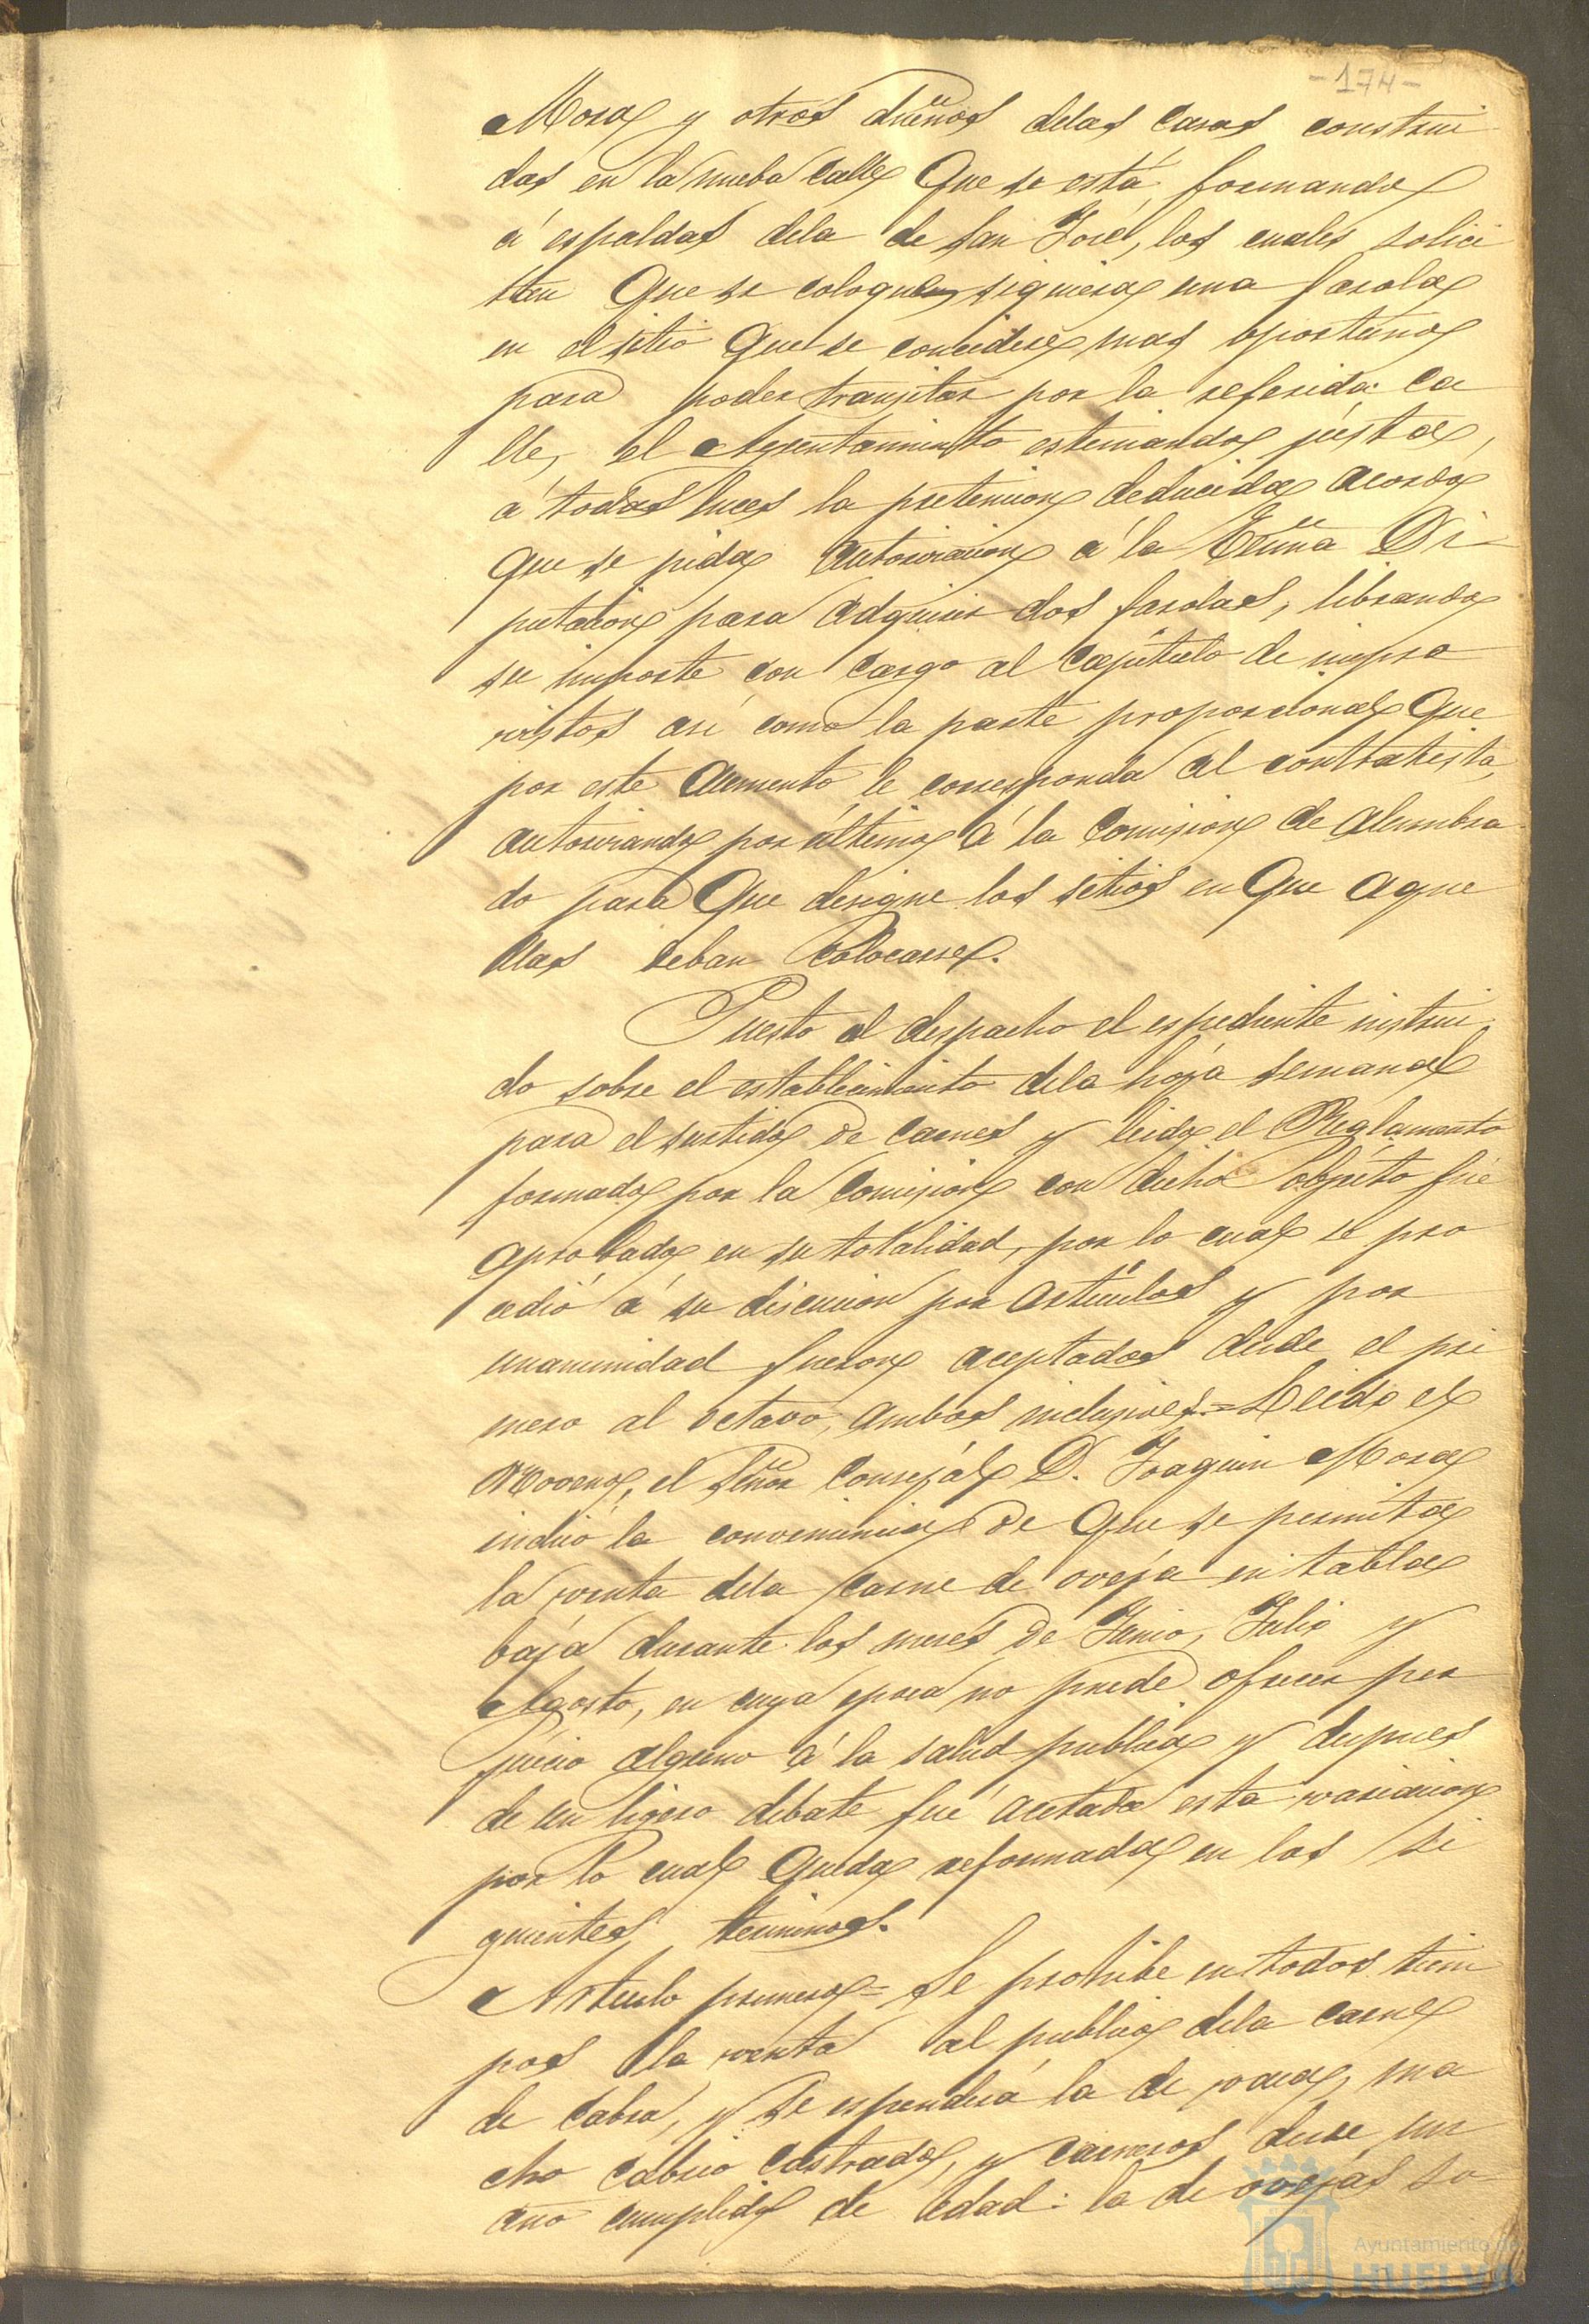 -174-
Mora y otros dueños delas casas construi
das en la nueba calle que se está formando
á espaldas dela de San José, los cuales solici
tan que se coloque siquiera una farola
en el sitio que se concidere mas oportuno
para poder transitar por la referida ca
lle, el Ayuntamiento estimando justa,
á todas luces la pretencion deducida acordó
que se pida autoricacion á la Exma Di-
putacion para adquirir dos farolas, librando
su importe con cargo al Capitulo de impre
vistos asi como la parte proporcional que
por este aumento le corresponda al contratista,
autoricando por último á la Comision de alumbra
do para que designe los sitios en que aque
llas deban colocarse.
Puesto al despacho el espediente instrui
do sobre el establecimiento dela hoja semanal
para el surtido de carnes y leido el Reglamento
formado por la Comision con dicho objeto fué
aprobado en su totalidad, por lo cual se pro
cedió á su discucion por artículos y por
unanimidad fueron aceptados desde el pri
mero al octavo, ambos inclusives.=Leido el
Noveno, el Señor Consejál D. Joaquin Mora
indicó la conveniencia de que se permita
la venta dela carne de oveja en tabla
baja durante los meses de Junio, Julio y
Agosto, en cuya epoca no puede ofrecer per
juicio alguno á la salud publica y despues
de un ligero debate fué acetada esta variacion
por lo cual queda reformada en los si
guientes terminos.
Artículo primero= Se prohibe en todos tiem
pos la venta al publico dela carne
de cabra, y se espenderá la de vaca, ma
cho cabrio castrado, y carneros desde un
año cumplido de edad: la de ovejas so-
Ayuntamiento de
HUELVA